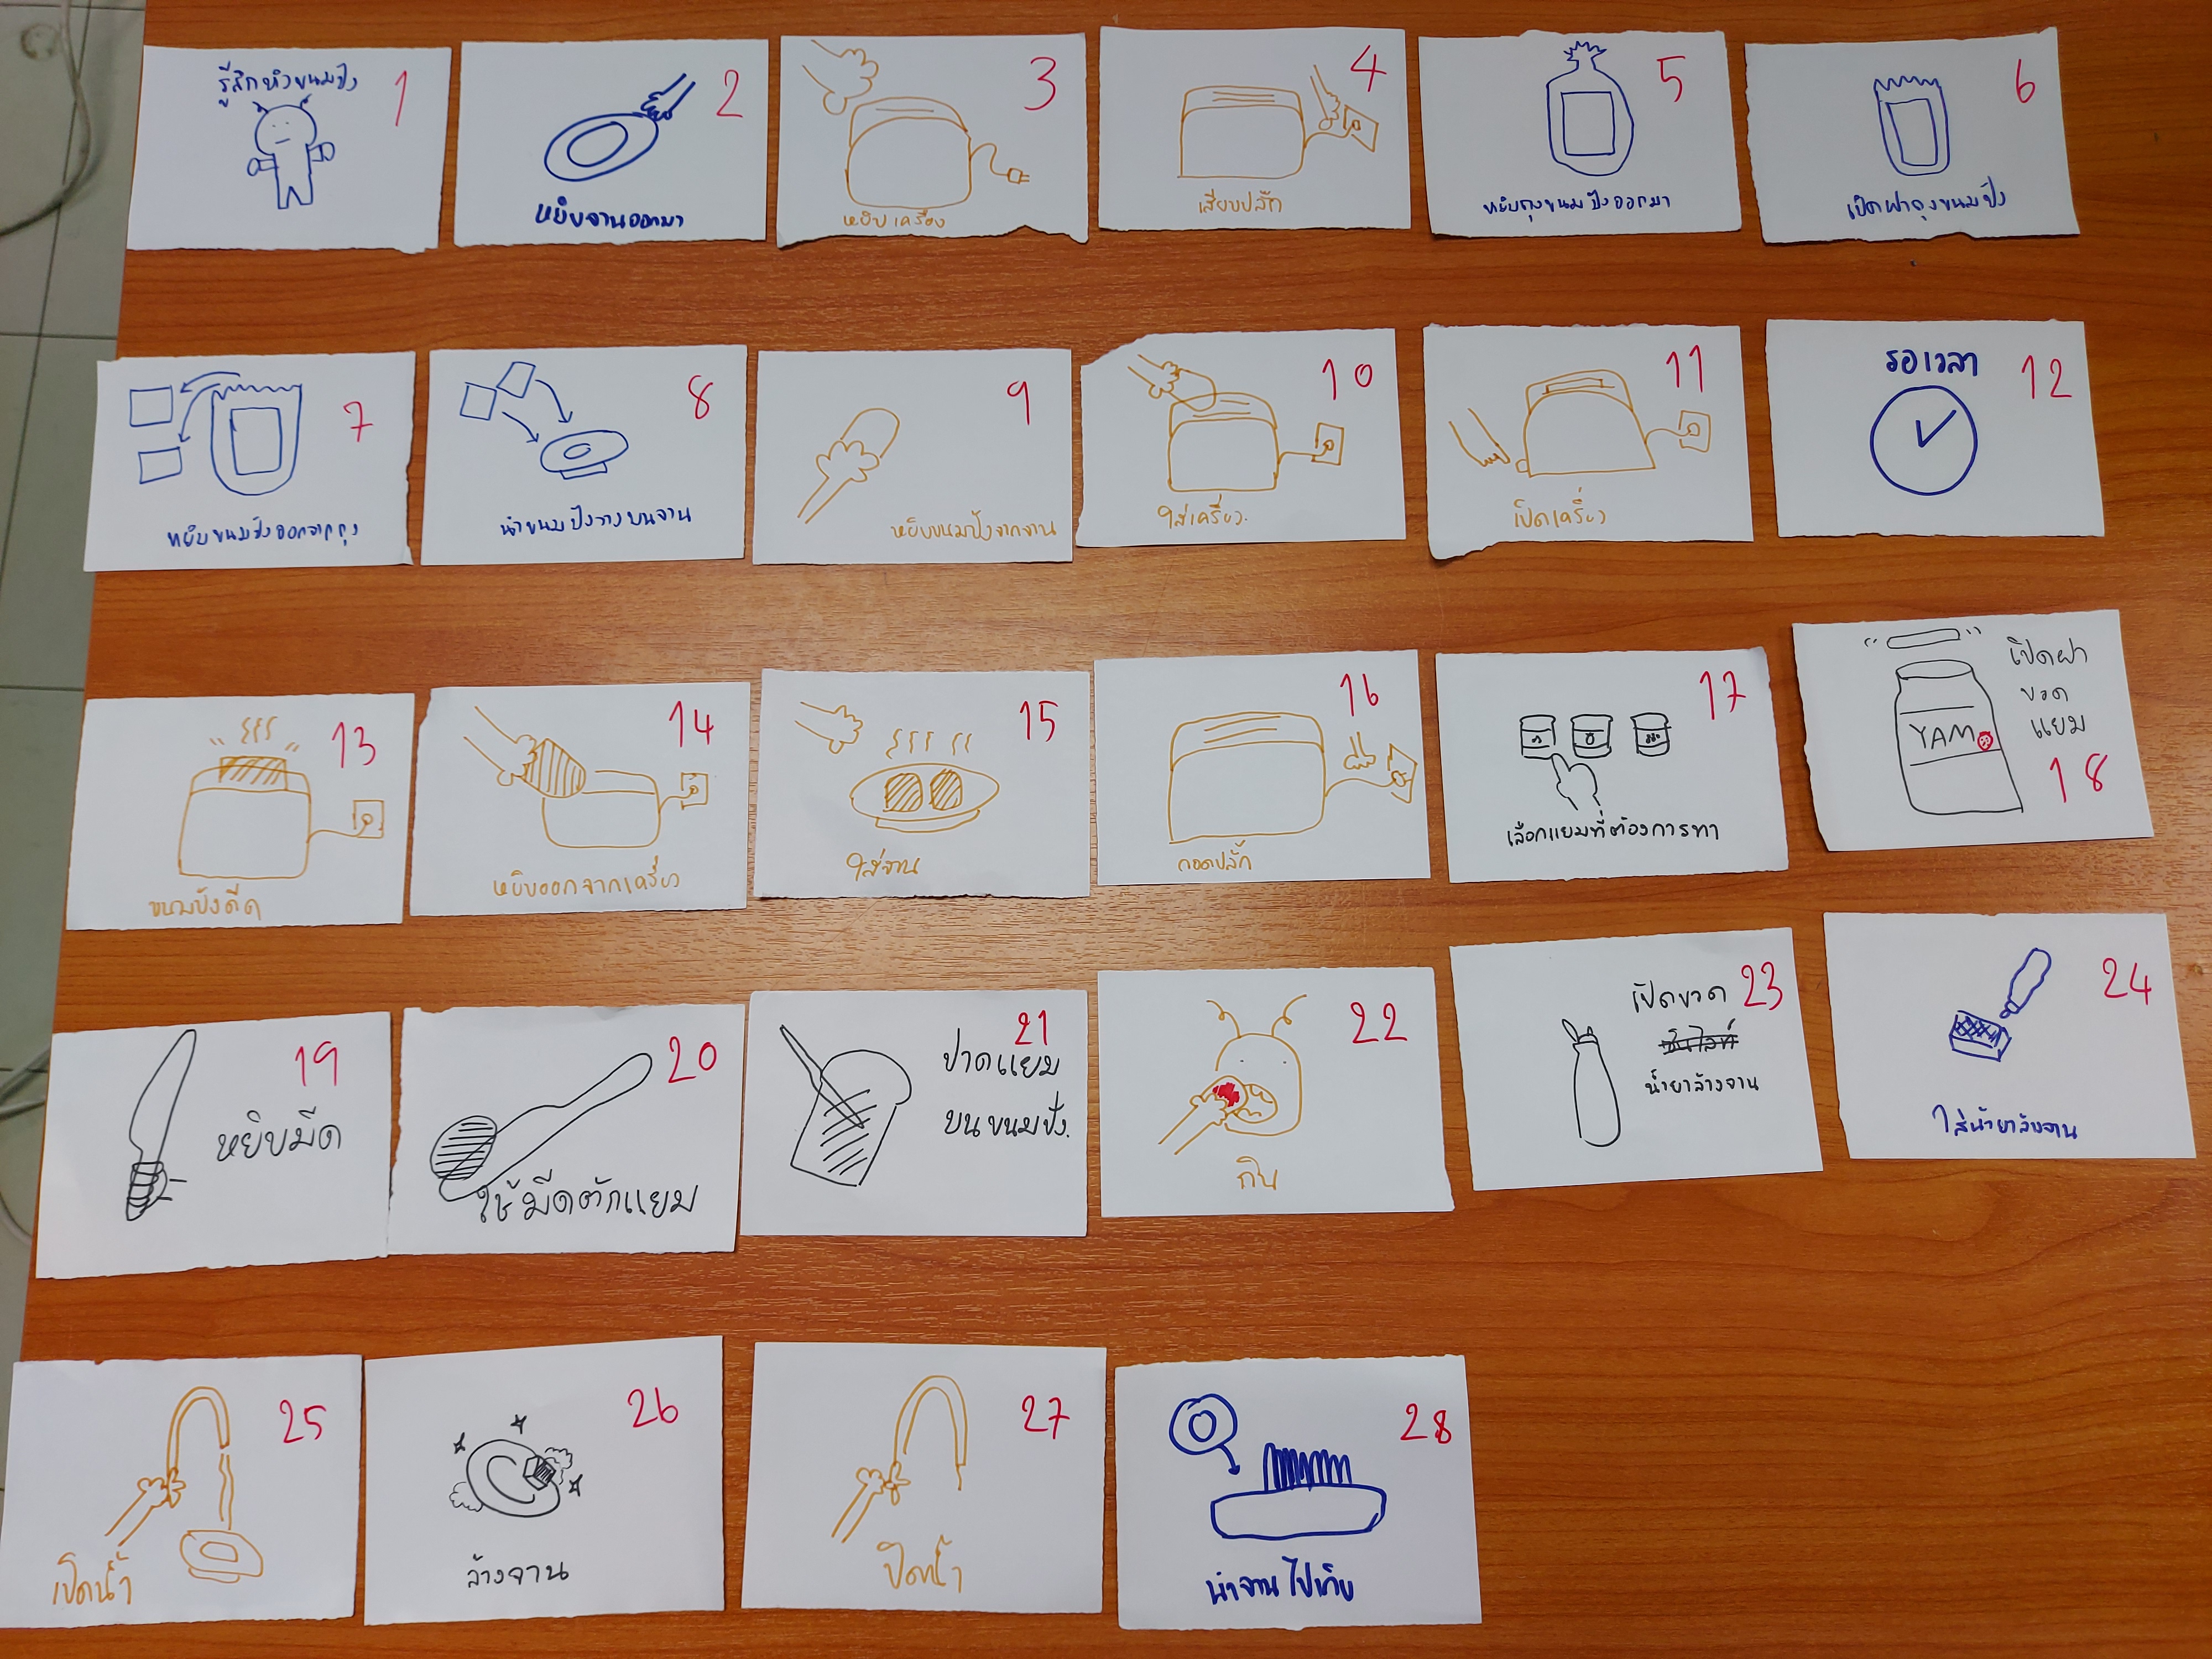 รู้สึกหิวขนมปัง
1
2
หยิบจานออกมา
3
หยิบเครื่อง
4
เสียบปลั๊ก
5
หยิบถุงขนมปังออกมา
6
เปิดฝาถุงขนมปัง
7
หยิบขนมปังออกจากถุง
8
นำขนมปังวางบนจาน
9
หยิบขนมปังจากจาน
10
ใส่เครื่อง.
11
เปิดเครื่อง
รอเวลา
12
13
ขนมปังดีด
14
หยิบออกจากเครื่อง
15
ใส่จาน
16
ถอดปลั๊ก
17
เลือกแยมที่ต้องการทา
เปิดฝา
ขวด
แยม
YAM
18
19
หยิบมีด
20
ใช้มีดตักแยม
21
ปาดแยม
บนขนมปัง.
22
กิน
เปิดขวด 23
ซันไลท์
น้ำยาล้างจาน
24
ใส่น้ำยาล้างจาน
25
เปิดน้ำ
26
ล้างจาน
27
ปิดน้ำ
28
นำจานไปเก็บ